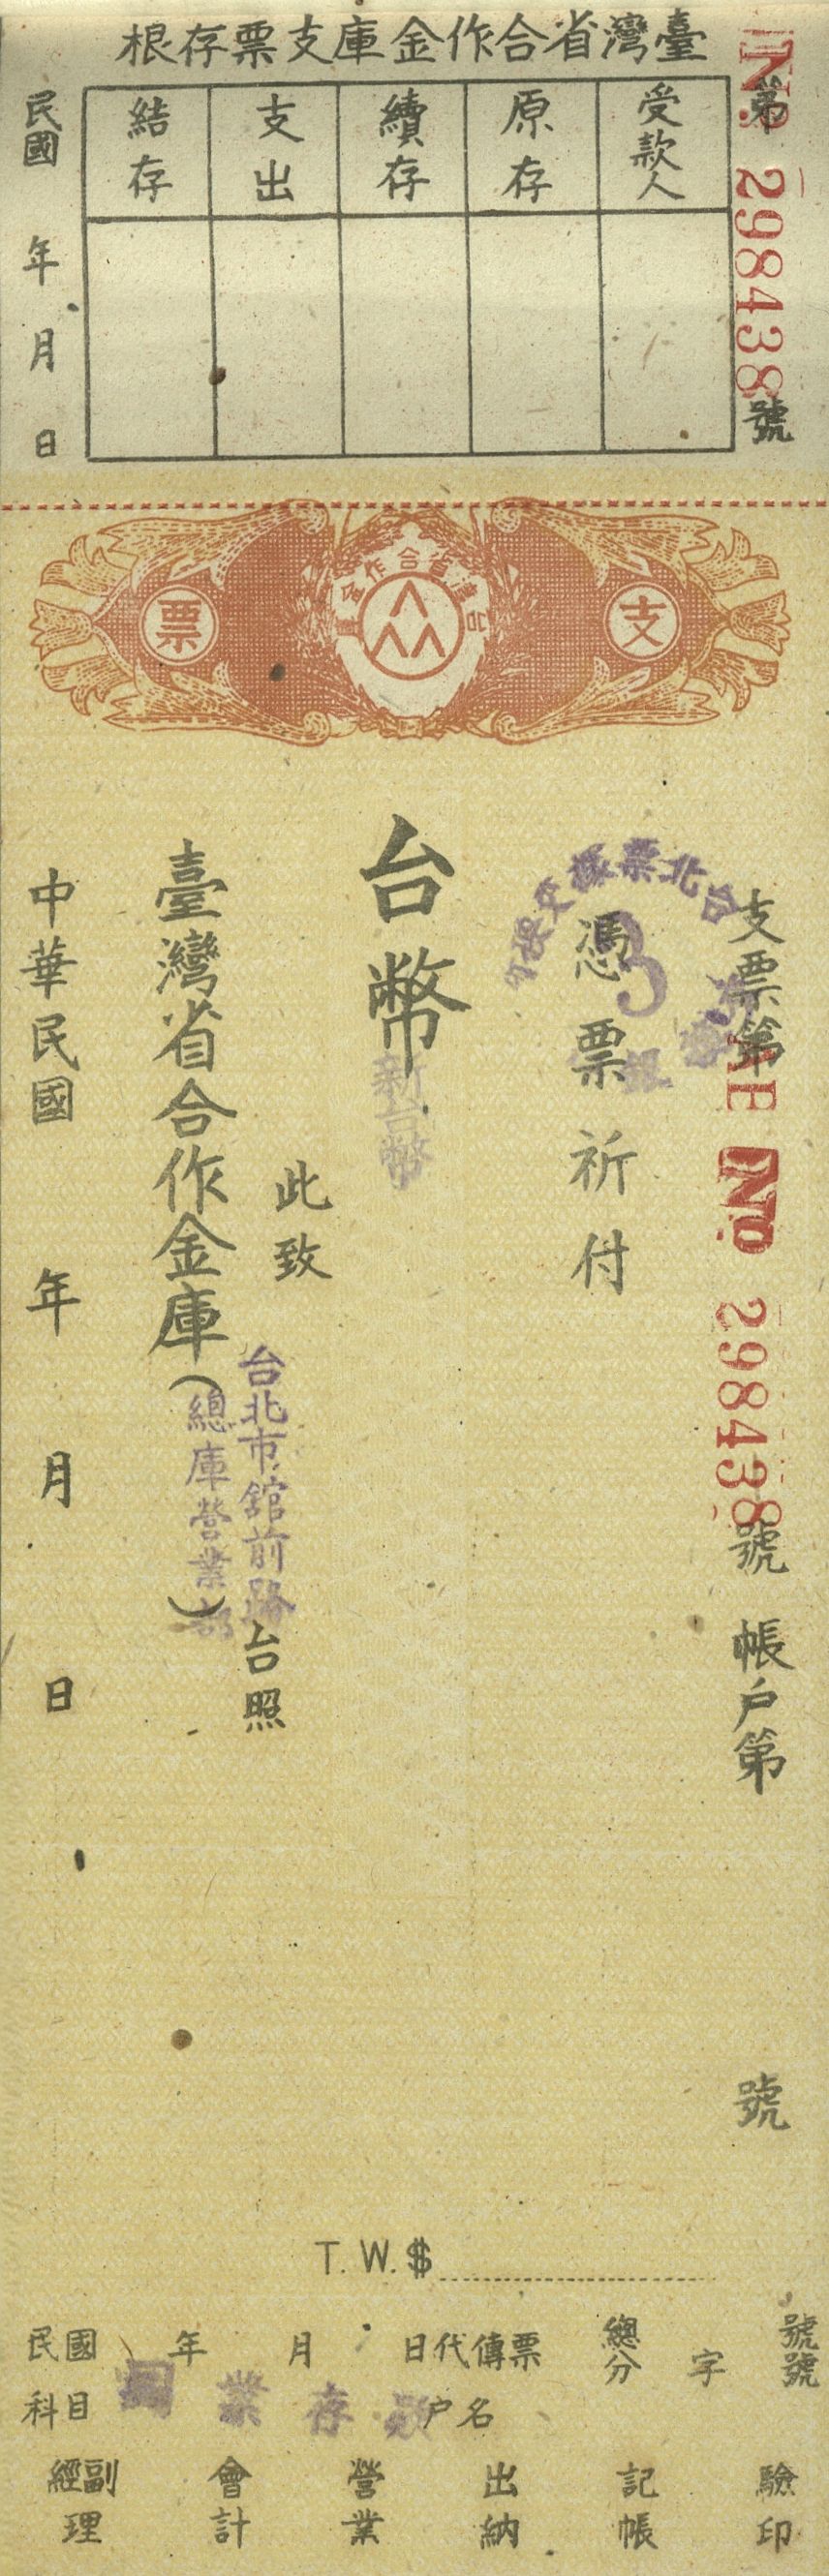 臺灣省合作金庫支票存根
第 No. 298438 號
受款人
原存
續存
支出
結存
民國 年 月 日
支 票
台灣省合作金庫
支票第 AE No 298438 號 帳戶第 號
台北票據交換
3
憑票祈付
台幣
新台幣
此致
台北市舘前路 台照
臺灣省合作金庫(總庫營業部)
中華民國 年 月 日
T. W. $
民國 年 月 日代傳票 總分 字 號號
科目 業存款 户名
經副理 會計 營業 出納 記帳 驗印